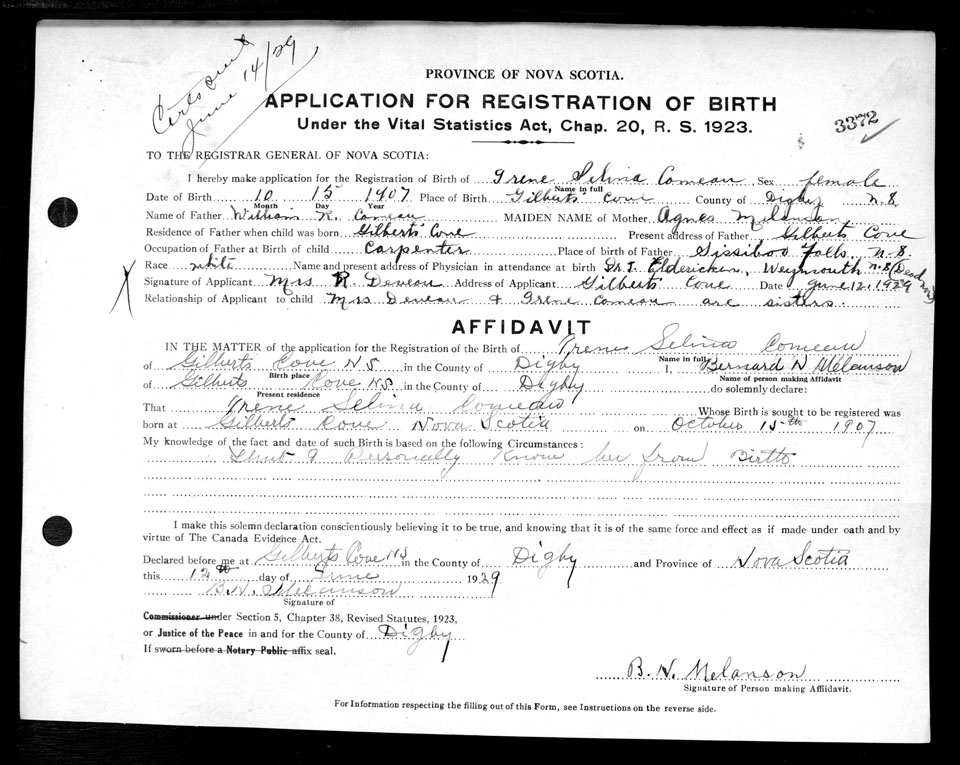 Certs sent
June 14/29
PROVINCE OF NOVA SCOTIA.
APPLICATION FOR REGISTRATION OF BIRTH
Under the Vital Statistics Act, Chap. 20, R. S. 1923.
3372
TO THE REGISTRAR GENERAL OF NOVA SCOTIA:
I hereby make application for the Registration of Birth of Irene Selina Comeau, Sex female
Name in full
Date of Birth 10 15 1907 Place of Birth Gilberts' Cove County of Digby N.S.
Month Day Year
Name of Father William R. Comeau MAIDEN NAME of Mother Agnes Melanson
Residence of Father when child was born Gilberts' Cove Present address of Father Gilberts' Cove
Occupation of Father at Birth of child Carpenter Place of birth of Father Sissiboo Falls, N.S.
Race white Name and present address of Physician in attendance at birth Dr. , Weymouth N.S. (Dead now)
Signature of Applicant Mrs R. Deveau Address of Applicant Gilberts' Cove Date June 12, 1929
Relationship of Applicant to child Mrs Deveau & Irene Comeau are sisters.
AFFIDAVIT
IN THE MATTER of the application for the Registration of the Birth of Irene Selina Comeau
Name in full
of Gilberts Cove N S in the County of Digby I, Bernard N Melanson
Birth place Name of person making Affidavit
of Gilberts Cove N S in the County of Digby do solemnly declare:
Present residence
That Irene Selina Comeau Whose Birth is sought to be registered was
born at Gilberts Cove Nova Scotia on October 15th 1907
My knowledge of the fact and date of such Birth is based on the following Circumstances:
That I Personally Know her from Birth
I make this solemn declaration conscientiously believing it to be true, and knowing that it is of the same force and effect as if made under oath and by
virtue of The Canada Evidence Act.
Declared before me at Gilberts Cove N S in the County of Digby and Province of Nova Scotia
this 12th day of June 1929
B. N. Melanson
Signature of
Commissioner under Section 5, Chapter 38, Revised Statutes, 1923,
or Justice of the Peace in and for the County of Digby
If sworn before a Notary Public affix seal.
B. N. Melanson
Signature of Person making Affidavit.
For Information respecting the filling out of this Form, see Instructions on the reverse side.